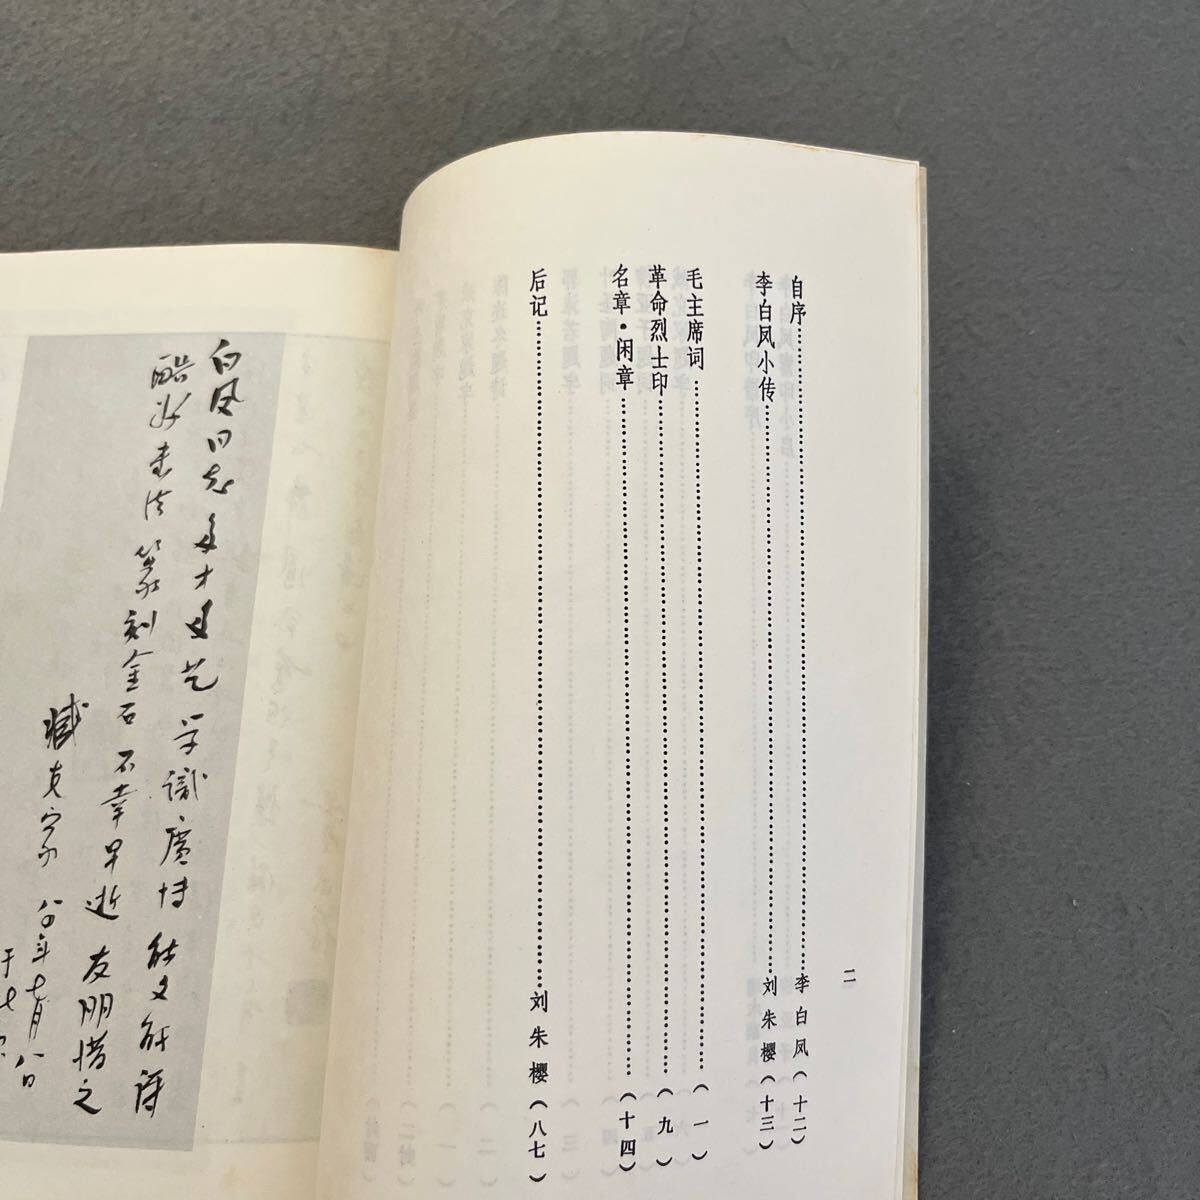 二
自序……李白凤（十二）
李白凤小传……刘朱樱（十三）
毛主席词……（一）
革命烈士印……（九）
名章·闲章……（十四）
后记……刘朱樱（八七）
白凤同志多才多艺学識廣博能文能诗
酷好書法篆刻金石不幸早逝友朋惜之
臧克家 八〇年七月八日
于七